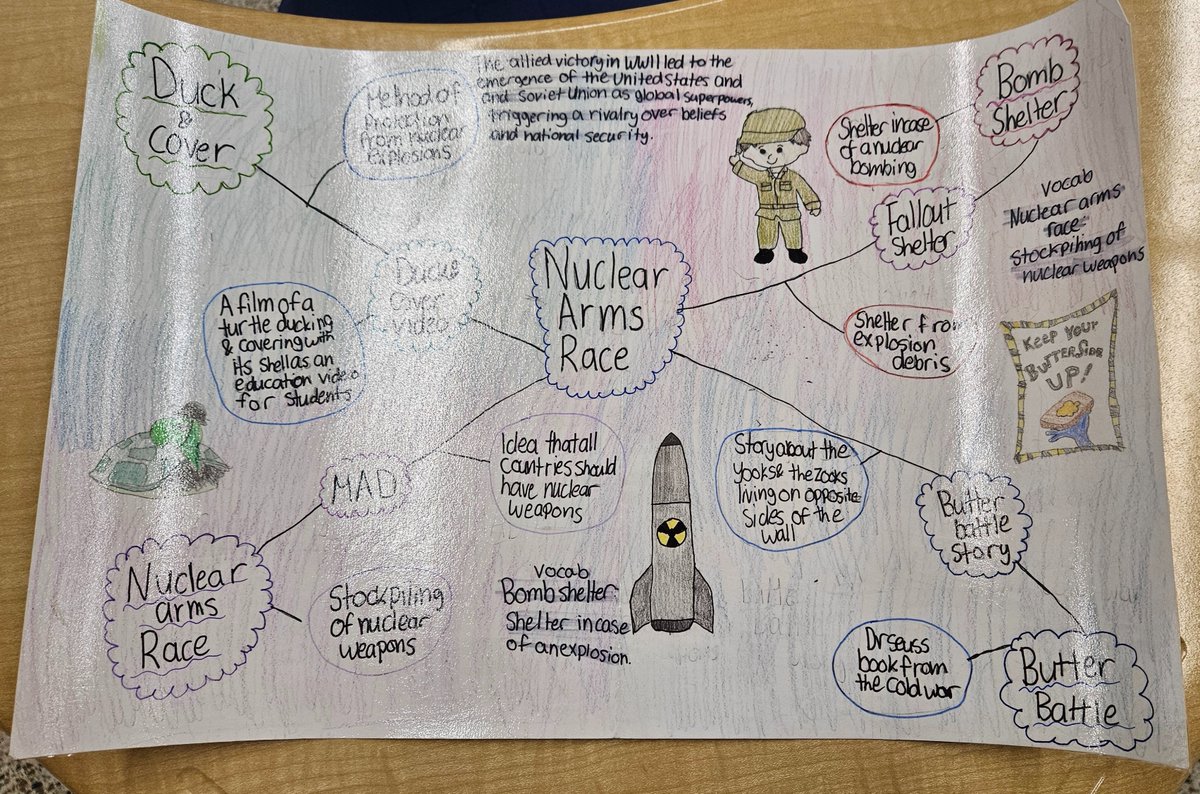 Duck
&
Cover
Method of
Protection
from nuclear
explosions
The allied victory in WWII led to the
emergence of the United States and
and Soviet Union as global superpowers,
triggering a rivalry over beliefs
and national security.
Bomb
Shelter
Shelter in case
of a nuclear
bombing
Fallout
Shelter
Vocab
Nuclear arms
race
Stockpiling of
nuclear weapons
Duck &
Cover
video
A film of a
turtle ducking
& covering with
its shell as an
education video
for students
Nuclear
Arms
Race
Shelter from
explosion
debris
KEEP YOUR
BUTTERSIDE
UP!
MAD
Idea that all
Countries should
have nuclear
weapons
Story about the
Yooks & the Zooks
living on opposite
sides of the
wall
Butter
battle
Story
Nuclear
arms
Race
Stockpiling
of nuclear
weapons
Vocab
Bomb shelter
Shelter in case
of an explosion.
Dr seuss
book from
the cold war
Butter
Battle